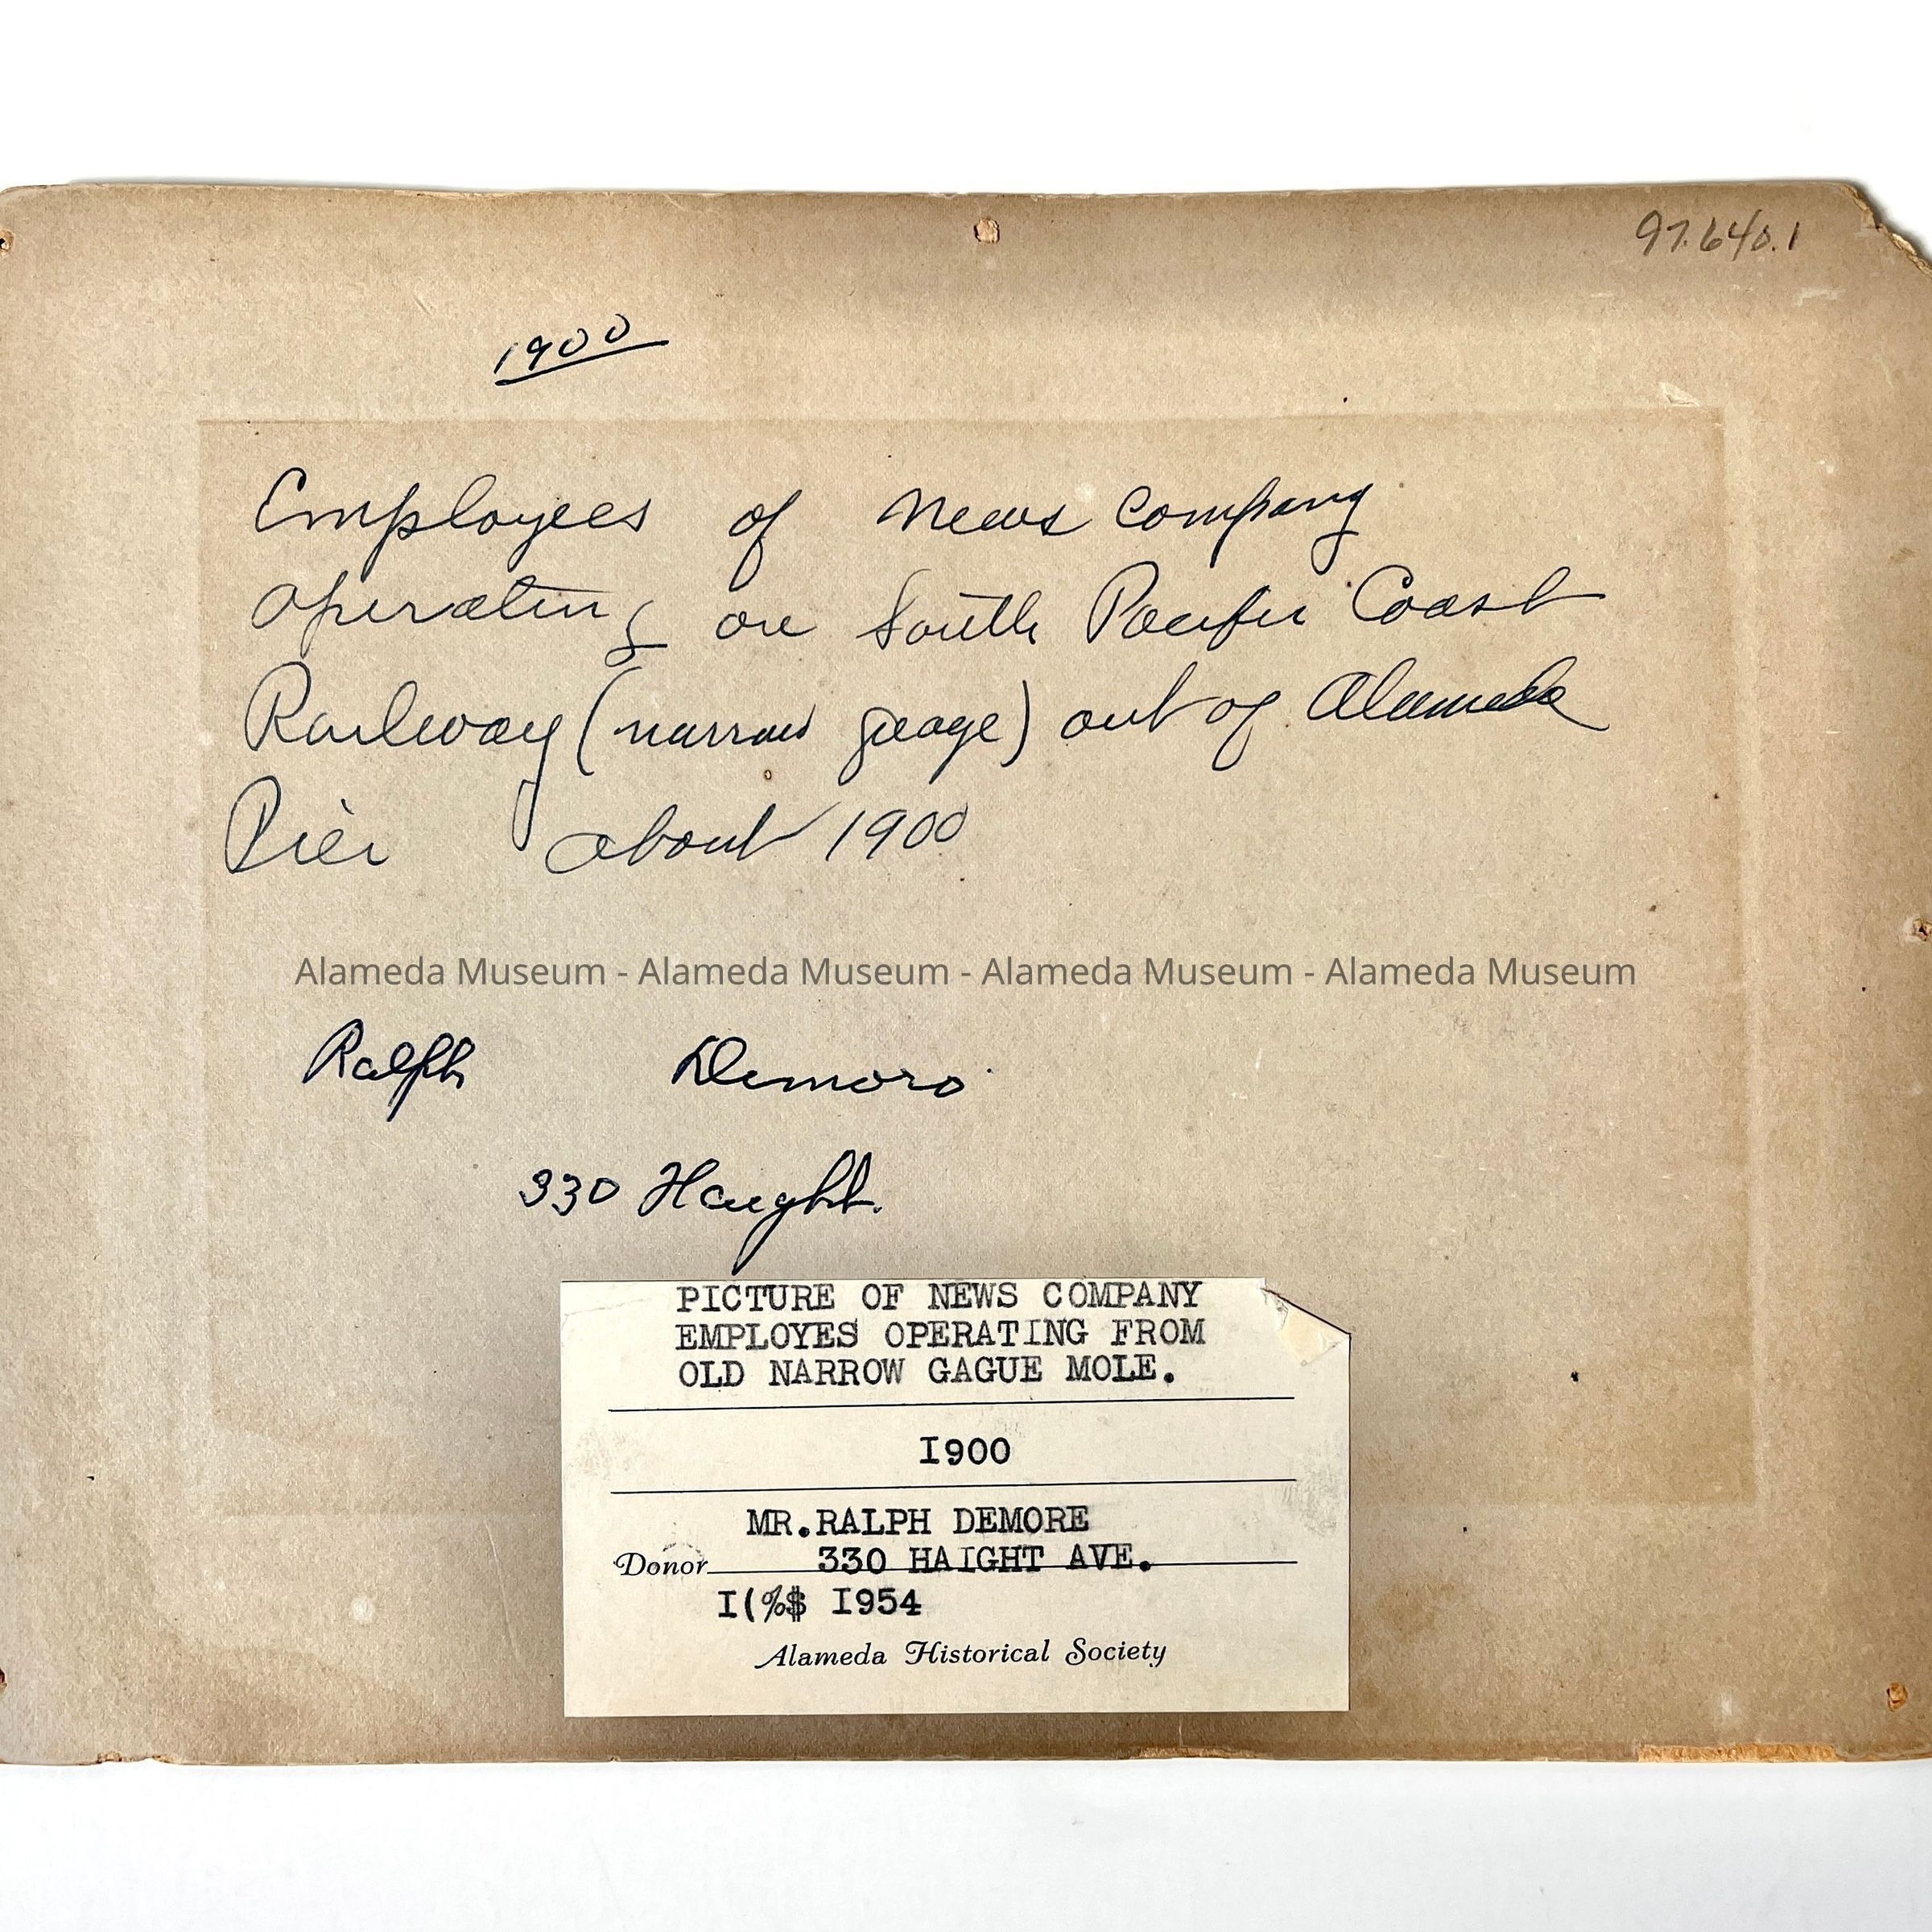 97.640.1
1900
Employees of News Company
operating on South Pacific Coast
Railway (narrow geage) out of Alameda
Pier about 1900
Alameda Museum - Alameda Museum - Alameda Museum - Alameda Museum
Ralph Demoro
330 Haight.
PICTURE OF NEWS COMPANY
EMPLOYES OPERATING FROM
OLD NARROW GAGUE MOLE.
I900
MR.RALPH DEMORE
Donor 330 HAIGHT AVE.
I(%$ I954
Alameda Historical Society